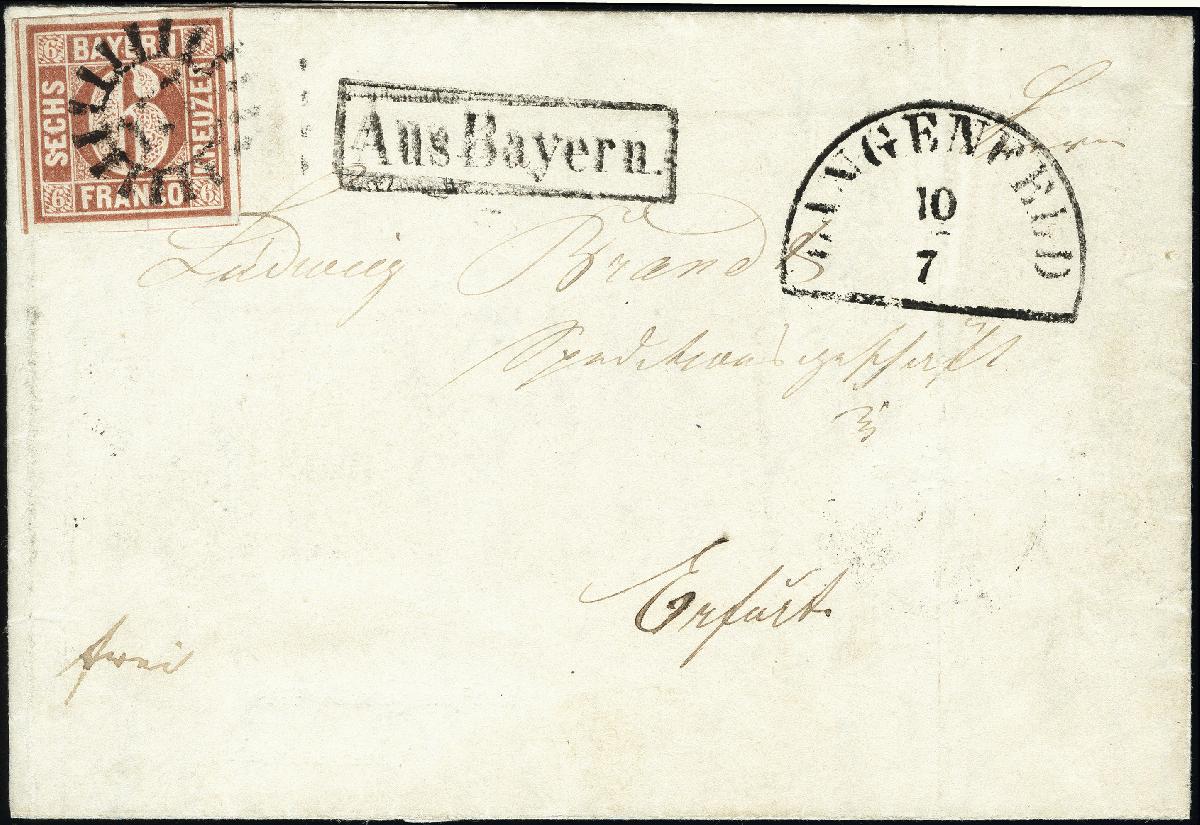 6 BAYERN 6
SECHS 6 KREUZER
6 FRANCO 6
Aus Bayern.
LANGENFELD
10
7
Herrn
Ludwig Brandt
Speditionsgeschäft
in
Erfurt
frei